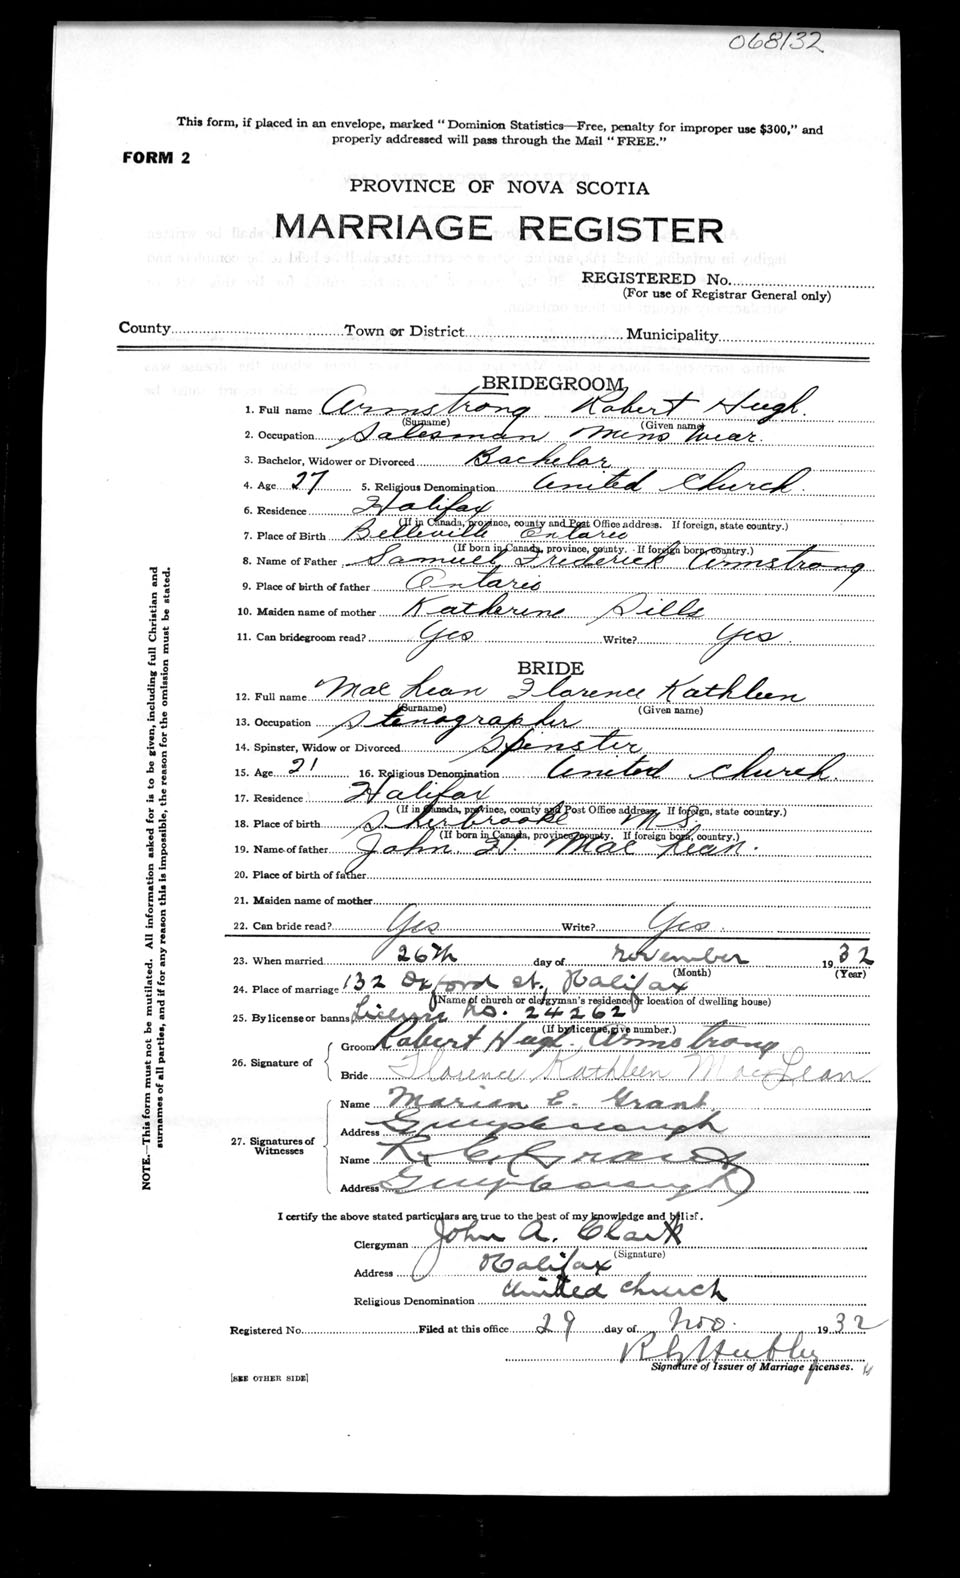 068132
This form, if placed in an envelope, marked "Dominion Statistics—Free, penalty for improper use $300," and
properly addressed will pass through the Mail "FREE."
FORM 2
PROVINCE OF NOVA SCOTIA
MARRIAGE REGISTER
REGISTERED No.
(For use of Registrar General only)
County Town or District Municipality
BRIDEGROOM
1. Full name Armstrong Robert Hugh.
(Surname) (Given name)
2. Occupation Salesman Mens Wear.
3. Bachelor, Widower or Divorced Bachelor
4. Age 27 5. Religious Denomination United Church.
6. Residence Halifax
(If in Canada, province, county and Post Office address. If foreign, state country.)
7. Place of Birth Belleville Ontario
(If born in Canada, province, county. If foreign born, country.)
8. Name of Father Samuel Frederick Armstrong
9. Place of birth of father Ontario
10. Maiden name of mother Katherine Sills
11. Can bridegroom read? Yes Write? Yes.
BRIDE
12. Full name Mac Lean Florence Kathleen
(Surname) (Given name)
13. Occupation Stenographer
14. Spinster, Widow or Divorced Spinster
15. Age 21 16. Religious Denomination United Church.
17. Residence Halifax
(If in Canada, province, county and Post Office address. If foreign, state country.)
18. Place of birth Sherbrooke N.S.
(If born in Canada, province, county. If foreign born, country.)
19. Name of father John H Mac Lean.
20. Place of birth of father
21. Maiden name of mother
22. Can bride read? Yes Write? Yes.
23. When married 26th day of November 1932
(Month) (Year)
24. Place of marriage 132 Oxford St., Halifax
(Name of church or clergyman's residence or location of dwelling house)
25. By license or banns License No. 24262
(If by license, give number.)
26. Signature of Groom Robert Hugh Armstrong
Bride Florence Kathleen MacLean
27. Signatures of Witnesses Name Marian C. Grant
Address Guysborough
Name R. C. Grant
Address Guysborough
I certify the above stated particulars are true to the best of my knowledge and belief.
Clergyman John A. Clark
(Signature)
Address Halifax
Religious Denomination United Church
Registered No. Filed at this office 29 day of Nov. 1932
Hubley
Signature of Issuer of Marriage Licenses.
[SEE OTHER SIDE]
NOTE.—This form must not be mutilated. All information asked for is to be given, including full Christian and
surnames of all parties, and if for any reason this is impossible, the reason for the omission must be stated.